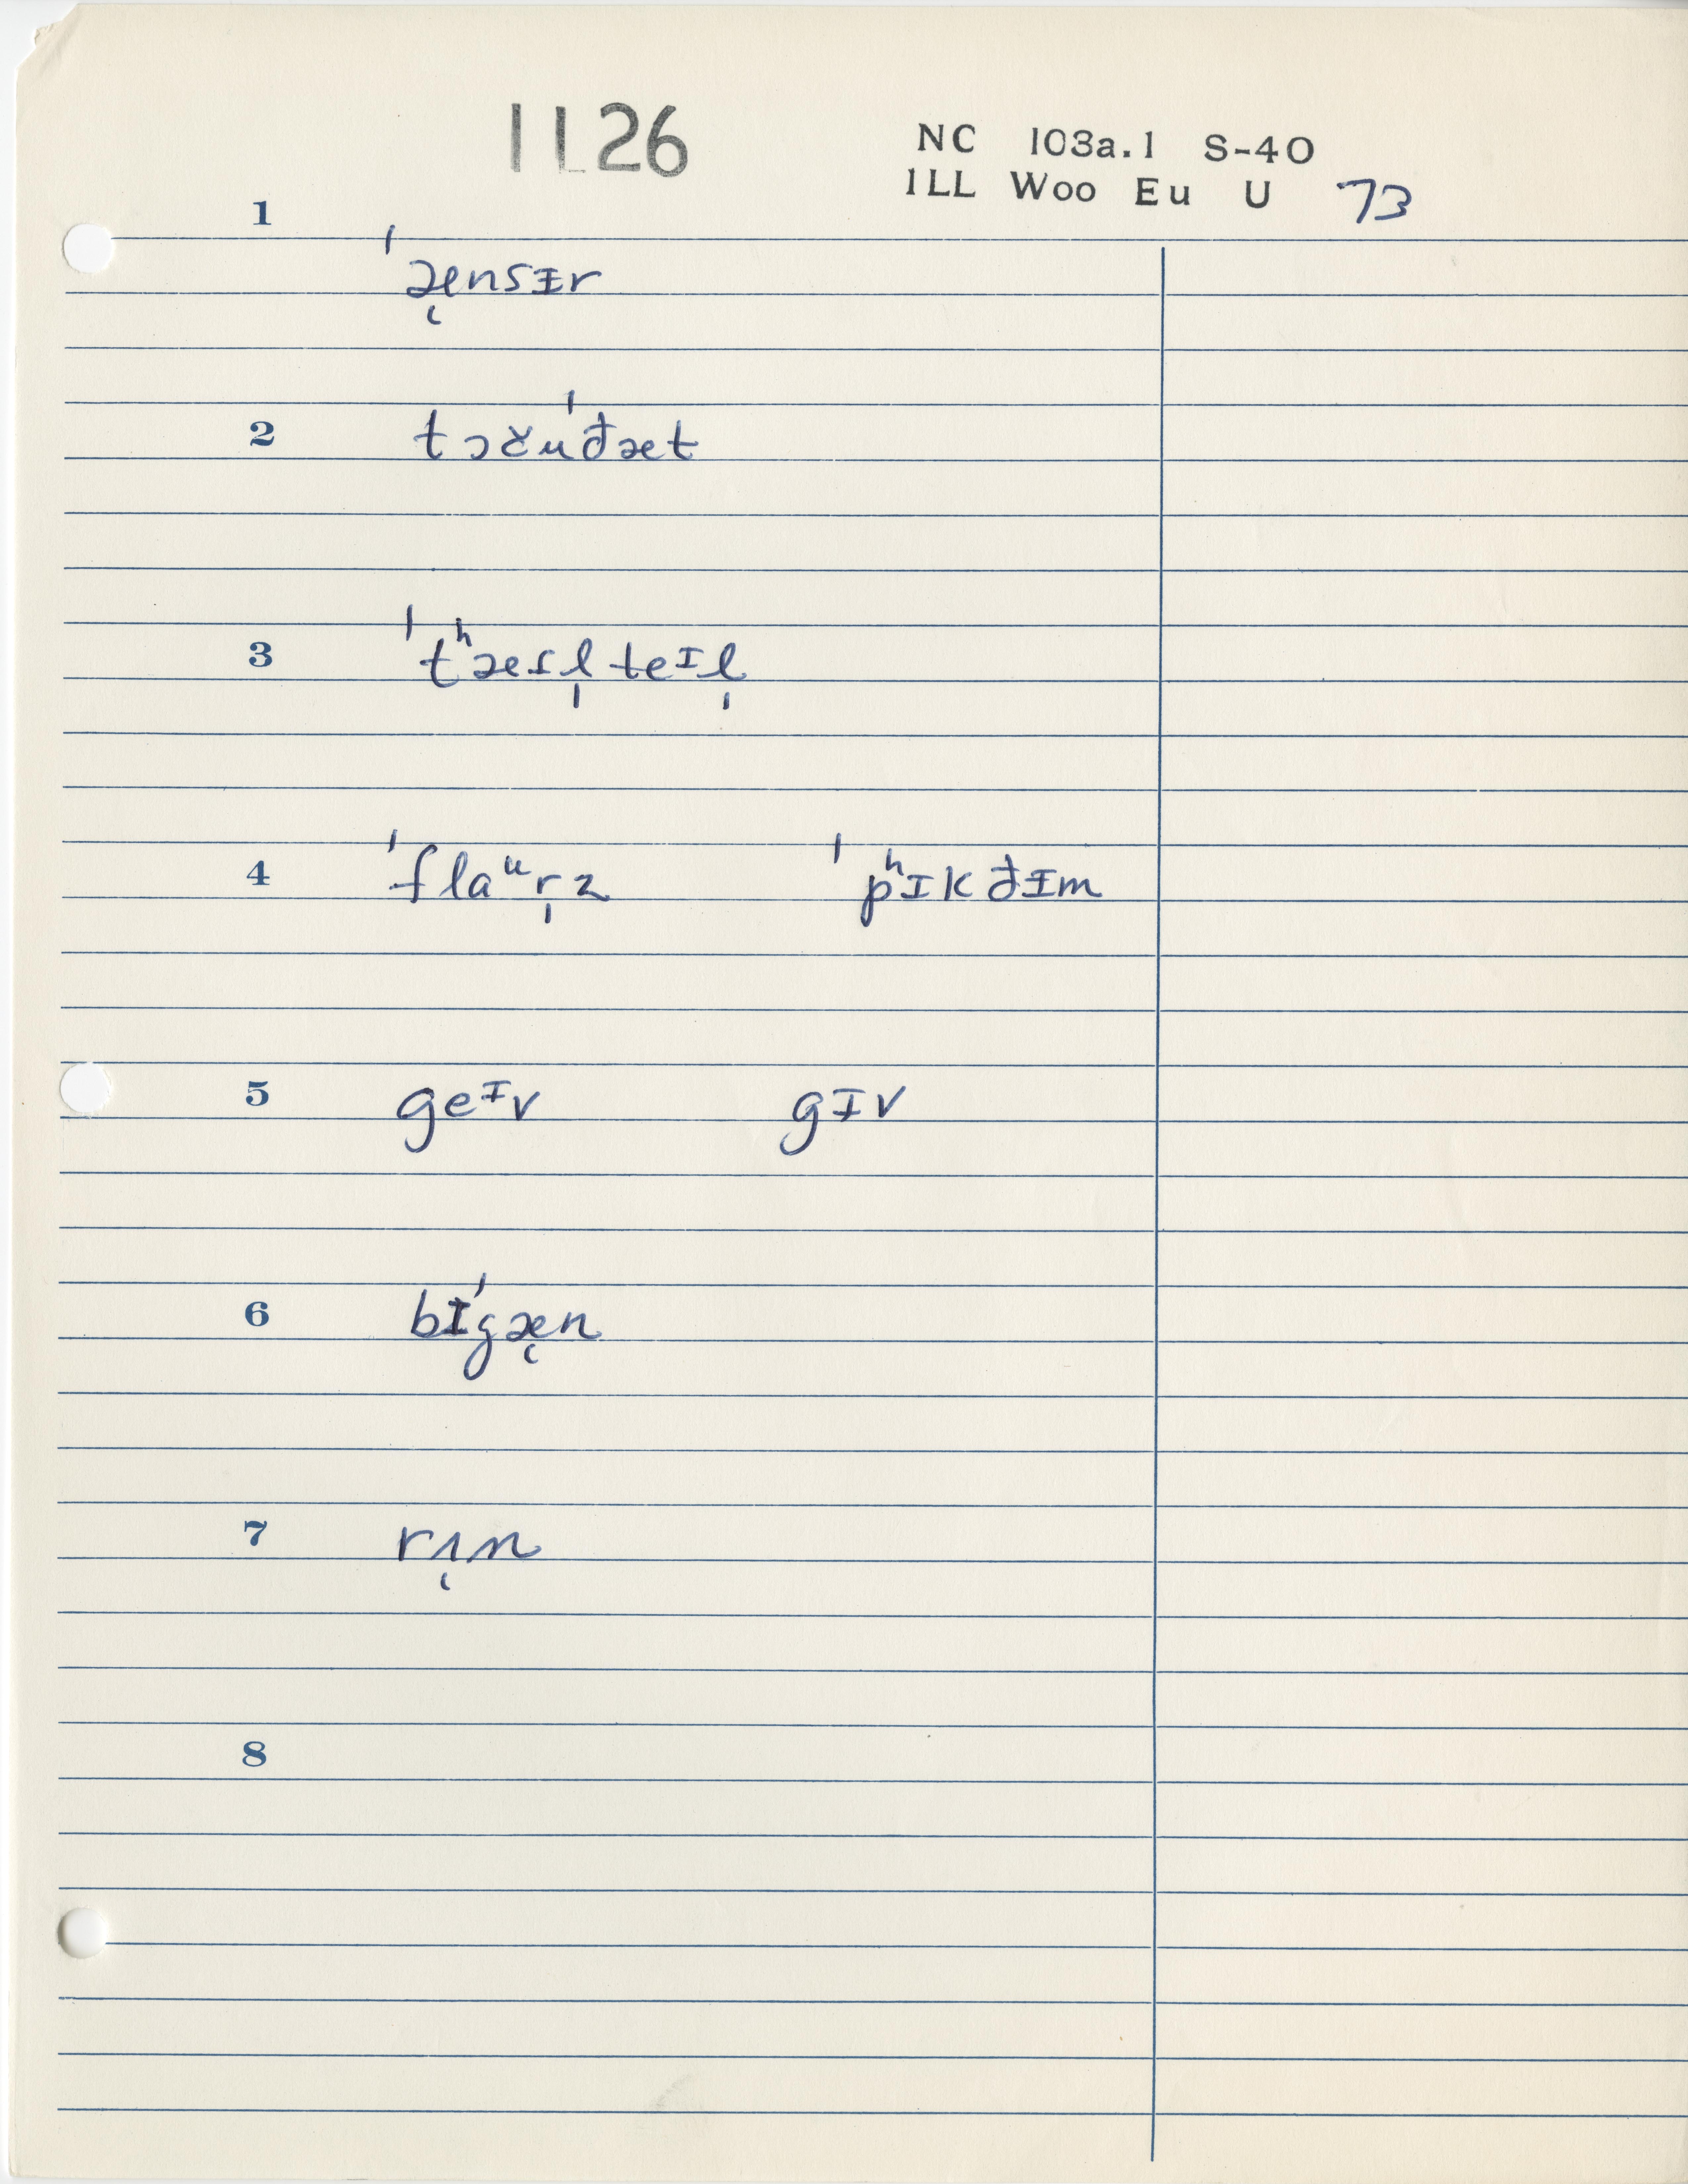 1126
NC 103a.1 S-40
ILL Woo Eu U 73
1 ˈæ̜nsɪr
2 tɔx̌uˈđæt
3 ˈtʰæsl̩teᴵl̩
4 ˈflaᵘr̩z ˈpʰɪkđɪm
5 geᴵv gɪv
6 bɪˈgæ̜n
7 rʌ̜n
8